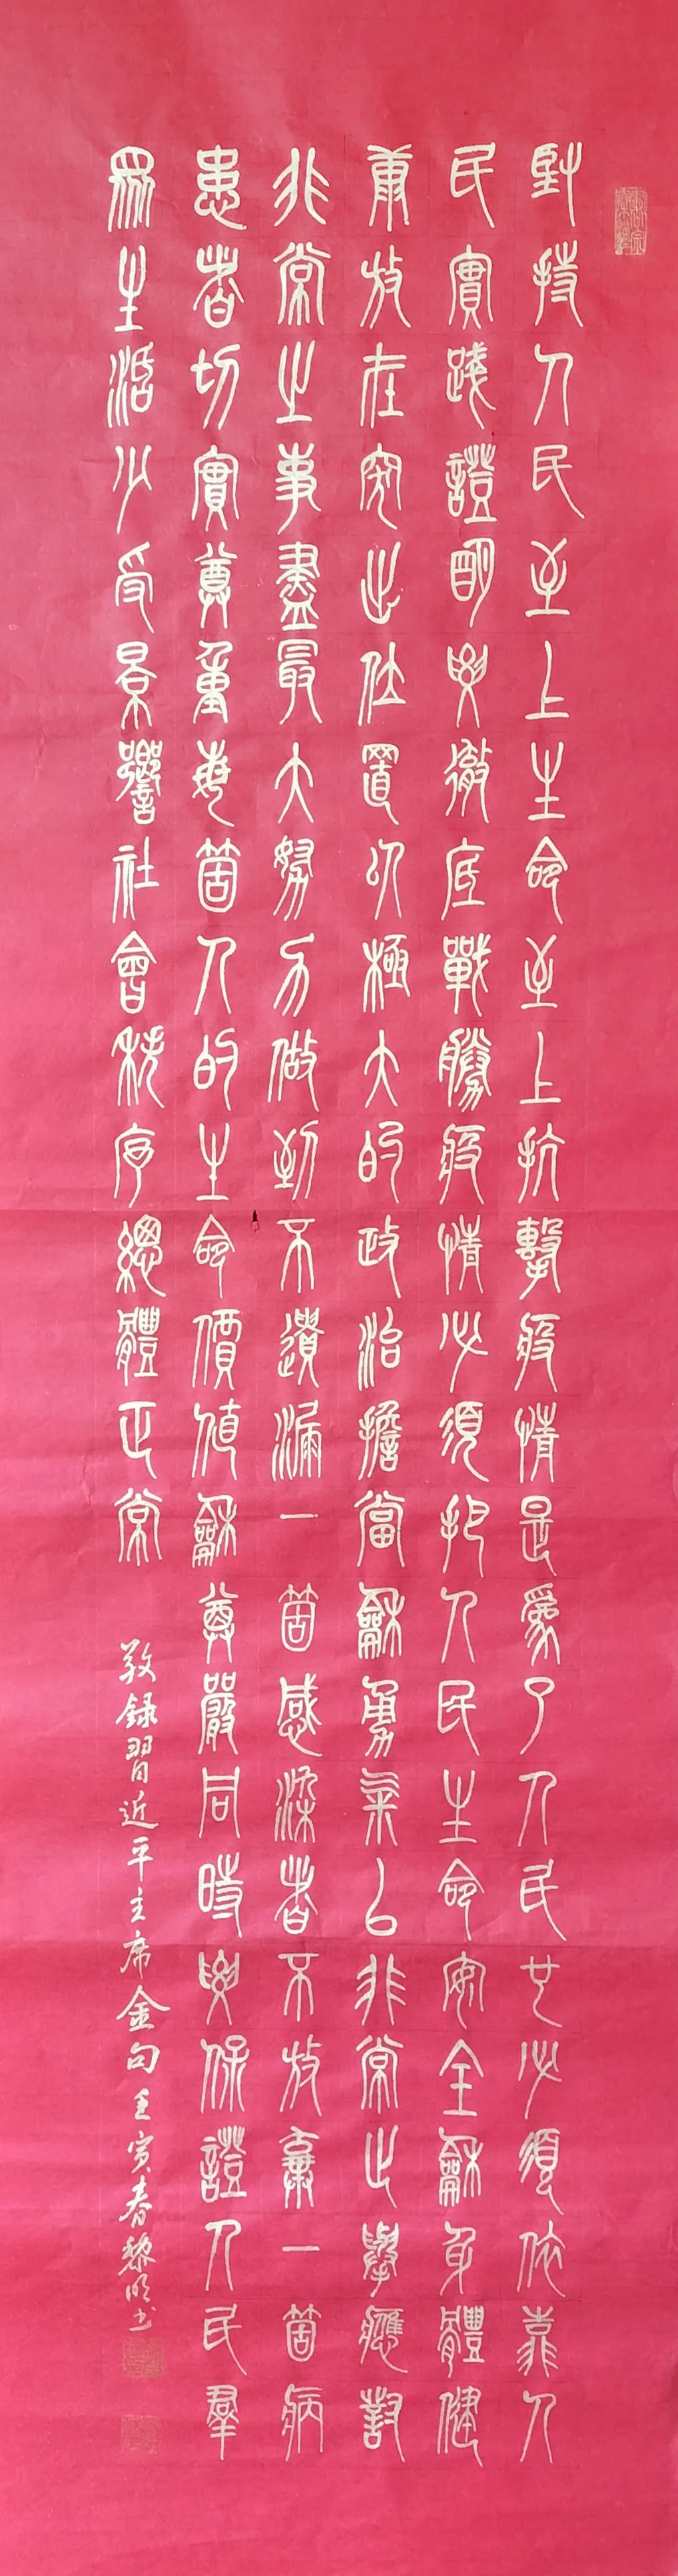 堅持人民至上生命至上抗擊疫情是為了人民也必須依靠人
民實踐證明要徹底戰勝疫情必須把人民生命安全龢身體健
康放在突出位置以極大的政治擔當龢勇氣以非常之舉應對
非常之事盡最大努力做到不遺漏一箇感染者不放棄一箇病
患者切實尊重每箇人的生命價值龢尊嚴同時要保證人民羣
眾生活少受景響社會秩序總體正常
敬録習近平主席金句壬寅春黎明书